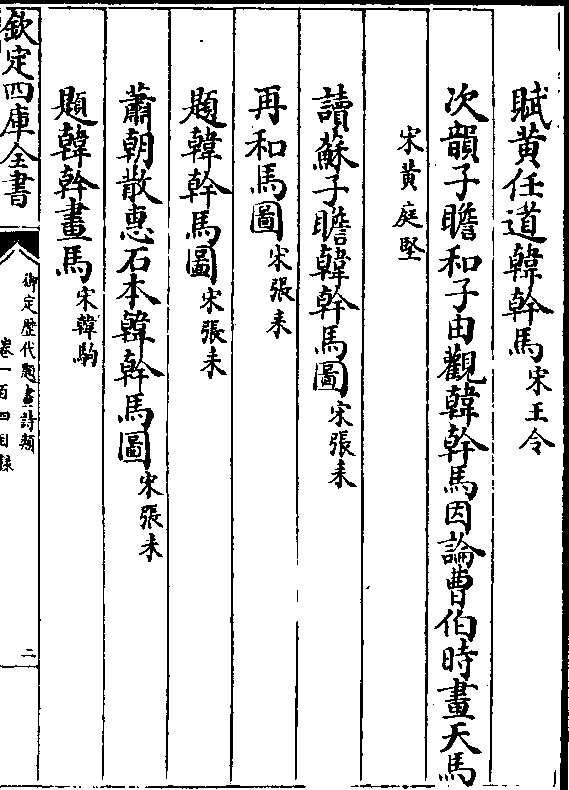 賦黄任道韓幹馬宋王令
次韻子瞻和子由觀韓幹馬因論曹伯時畫天馬
宋黄庭堅
讀蘇子瞻韓幹馬圖宋張耒
再和馬圖宋張耒
題韓幹馬圖宋張耒
蕭朝散惠石本韓幹馬圖宋張耒
題韓幹畫馬宋韓駒
欽定四庫全書
御定歴代題畫詩類
卷一百四目録
二